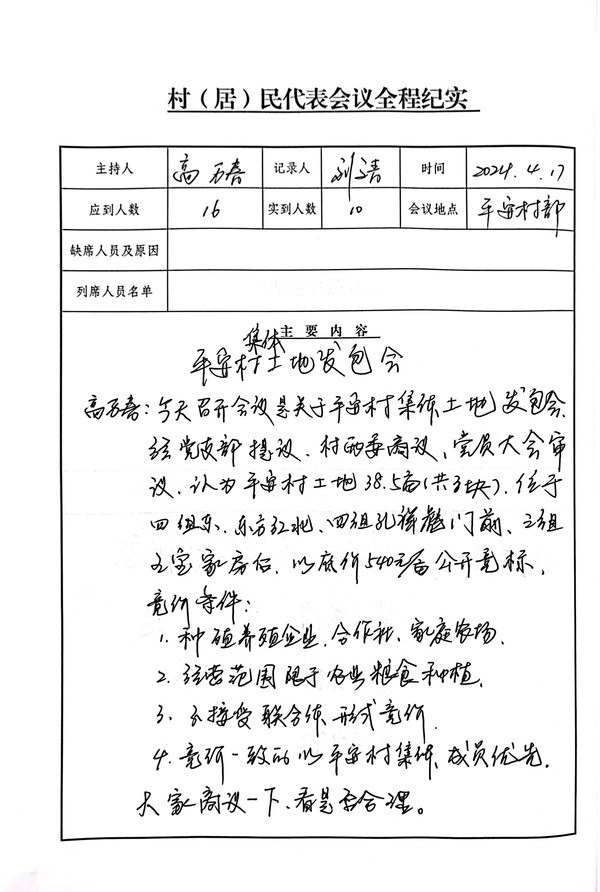 村（居）民代表会议全程纪实
主持人 高万春 记录人 刘清 时间 2024.4.17
应到人数 16 实到人数 10 会议地点 平安村部
缺席人员及原因
列席人员名单
主要内容
平安村集体土地发包会
高万春：今天召开会议是关于平安村集体土地发包会.
经党支部提议、村两委商议、党员大会审
议、认为平安村土地38.5亩(共3块)、位于
四组东、东方红北、四组孔祥 门前、三组
王宝家房后、以底价540元/亩公开竞标、
竞价条件：
1、种植养殖企业、合作社、家庭农场、
2、经营范围限于农业粮食种植、
3、不接受联合体形式竞价
4、竞价一致的以平安村集体成员优先、
大家商议一下、看是否合理。